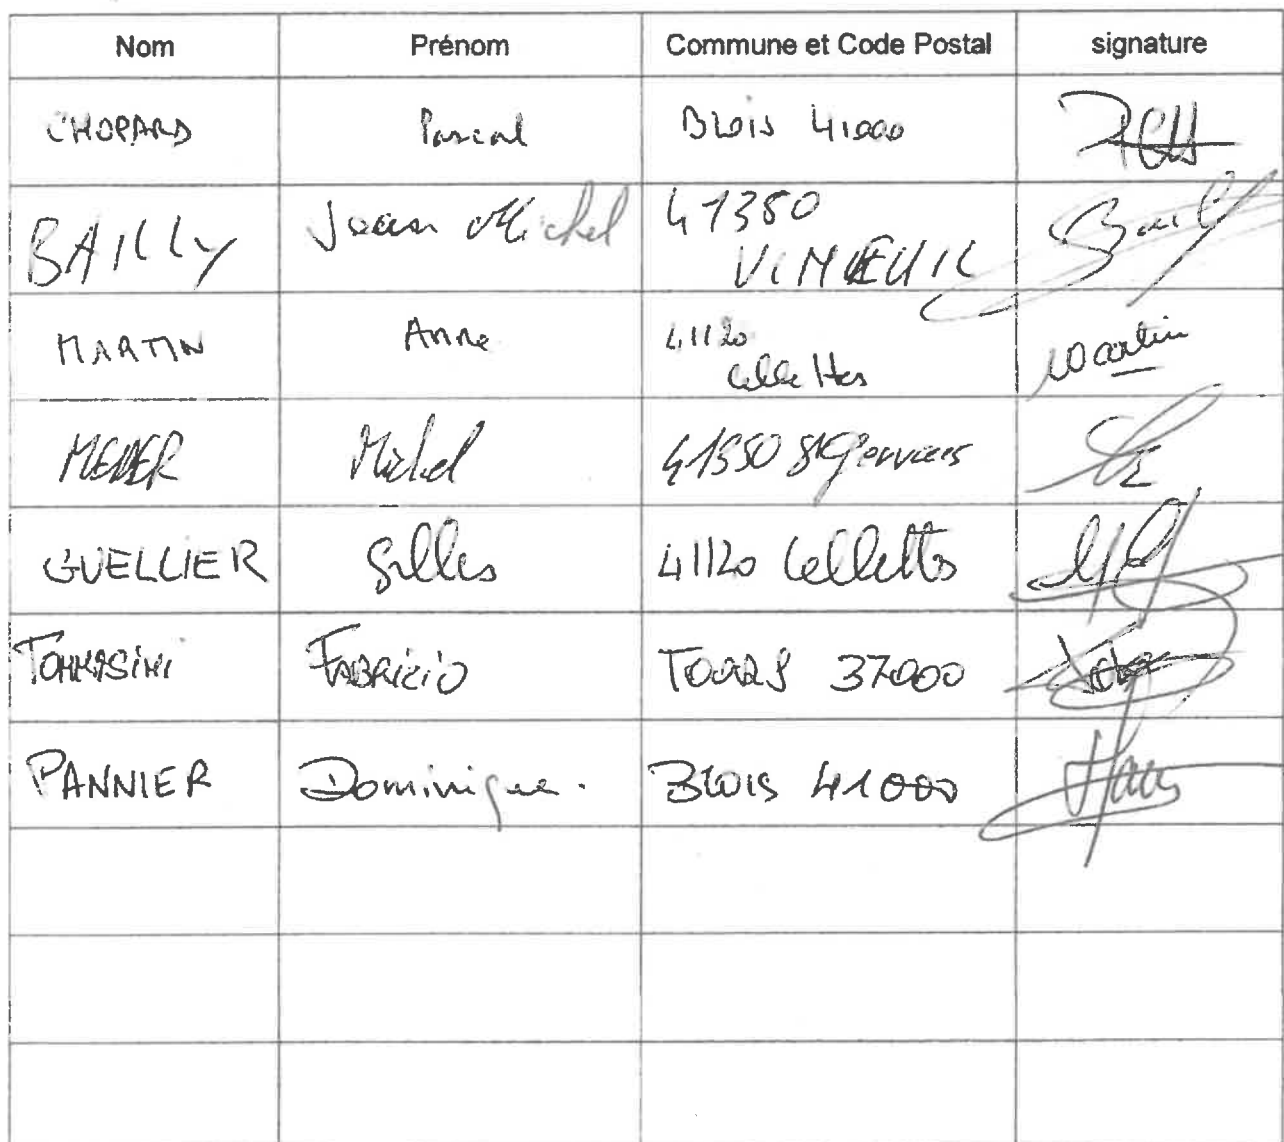 Nom Prénom Commune et Code Postal signature
CHOPARD Pascal BLOIS 41000
BAILLY Jean Michel 41350
VINEUIL
MARTIN Anne 41120 Martin
Cellettes
Michel 41350 St Gervais
GUELLIER Gilles 41120 Cellettes
TOMMASINI FABRIZIO TOURS 37000
PANNIER Dominique. BLOIS 41000